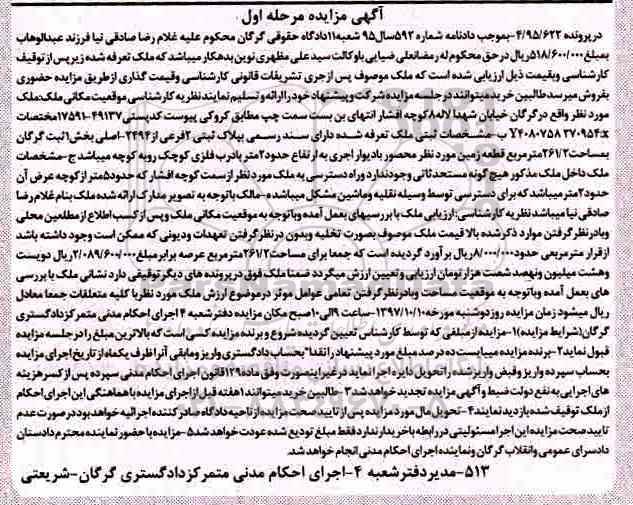 آگهی مزایده مرحله اول
در پرونده ۴/۹۵/۶۲۲-بموجب دادنامه شماره ۵۹۲سال۹۵ شعبه۱۱دادگاه حقوقی گرگان محکوم علیه غلام رضا صادقی نیا فرزند عبدالوهاب
بمبلغ۵۱۸/۶۰۰/۰۰۰ریال در حق محکوم له رمضانعلی ضیایی باوکالت سید علی مظهری نوین بدهکار میباشد که ملک تعرفه شده زیر پس از توقیف
کارشناسی وبقیمت ذیل ارزیابی شده است که ملک موصوف پس ازجری تشریفات قانونی کارشناسی وقیمت گذاری از طریق مزایده حضوری
بفروش میرسد طالبین خرید میتوانند در جلسه مزایده شرکت و پیشنهاد خود را ارائه و تسلیم نمایند نظریه کارشناسی موقعیت مکانی ملک:ملک
مورد نظر واقع در گرگان خیابان شهدا لاله۸کوچه افشار انتهای بن بست سمت چپ مطابق کروکی پیوست کدپستی۴۹۱۳۷-۱۷۵۹۱مختصات
Y۴۰۸۰۷۵۸ ۲۷۰۹۵۴:x ب-مشخصات ثبتی ملک تعرفه شده دارای سند رسمی بپلاک ثبتی ۲فرعی از۲۴۹۴-اصلی بخش۱ثبت گرگان
بمساحت۲۶۱/۲مترمربع قطعه زمین مورد نظر محصور بادیوار اجری به ارتفاع حدود۲متر بادرب فلزی کوچک روبه کوچه میباشد ج-مشخصات
ملک داخل ملک مذکور هیچ گونه مستحدثاتی وجودندارد وراه دسترسی به ملک مورد نظر از سمت کوچه افشار که حدود۵متر از کوچه عرض آن
حدود۲متر میباشد که برای دسترسی توسط وسیله نقلیه وماشین مشکل میباشد-مالک باتوجه به تصویر مدارک ارائه شده ملک بنام غلام رضا
صادقی نیا میباشد نظریه کارشناسی:ارزیابی ملک با بررسیهای بعمل آمده وباتوجه به موقعیت مکانی ملک وپس از کسب اطلاع از مطلعین محلی
وبادر نظر گرفتن موارد ذکر شده بالا قیمت ملک موصوف بصورت تخلیه وبدون در نظر گرفتن تعهدات ودیونی که ممکن است وجود داشته باشد
از قرار مترمربعی حدود۸/۰۰۰/۰۰۰ریال برآورد گردیده است که جمعا برای مساحت۲۶۱/۲مترمربع عرصه برابر مبلغ۲/۰۸۹/۶۰۰/۰۰۰ریال دویست
وهشت میلیون ونهصد شصت هزار تومان ارزیابی و تعیین ارزش میگردد ضمنا ملک فوق در پرونده های دیگر توقیفی دارد نشانی ملک با بررسی
های بعمل آمده وباتوجه به موقعیت مساحت وبادر نظر گرفتن تمامی عوامل موثر در موضوع ارزش ملک مورد نظر با کلیه متعلقات جمعا معادل
ریال میشود زمان مزایده روز دوشنبه مورخه۱۳۹۷/۱۰/۱۰-ساعت ۹الی۱۰صبح مکان مزایده دفتر شعبه ۴ اجرای احکام مدنی متمرکز دادگستری
گرگان(شرایط مزایده)۱-مزایده از مبلغی که توسط کارشناس تعیین گردیده شروع و برنده مزایده کسی است که بالاترین مبلغ را در جلسه مزایده
قبول نماید۲-برنده مزایده میبایست ده درصد مبلغ مورد پیشنهاد را نقدا"بحساب دادگستری واریز و مابقی آنرا ظرف یکماه از تاریخ اجرای مزایده
بحساب سپرده واریز وقبض واریز شده را تحویل دایره اجرا نماید در غیر اینصورت وفق ماده۱۲۹قانون اجرای احکام مدنی سپرده پس از کسر هزینه
های اجرایی به نفع دولت ضبط و آگهی مزایده تجدید خواهد شد۳-طالبین خرید میتوانند ۱هفته قبل از اجرای مزایده با هماهنگی این اجرای احکام
از ملک توقیف شده بازدید نمایند۴-تحویل مال مورد مزایده پس از تایید صحت مزایده از ناحیه دادگاه صادر کننده اجرائیه خواهد بود در صورت عدم
تایید صحت مزایده این اجرا مسئولیتی در رابطه با خریدار ندارد فقط مبلغ تودیع شده عودت خواهد شد۵-مزایده با حضور نماینده محترم دادستان
دادسرای عمومی وانقلاب گرگان ونماینده اجرای احکام مدنی انجام خواهد شد.
۵۱۳-مدیر دفتر شعبه ۴-اجرای احکام مدنی متمرکز دادگستری گرگان-شریعتی